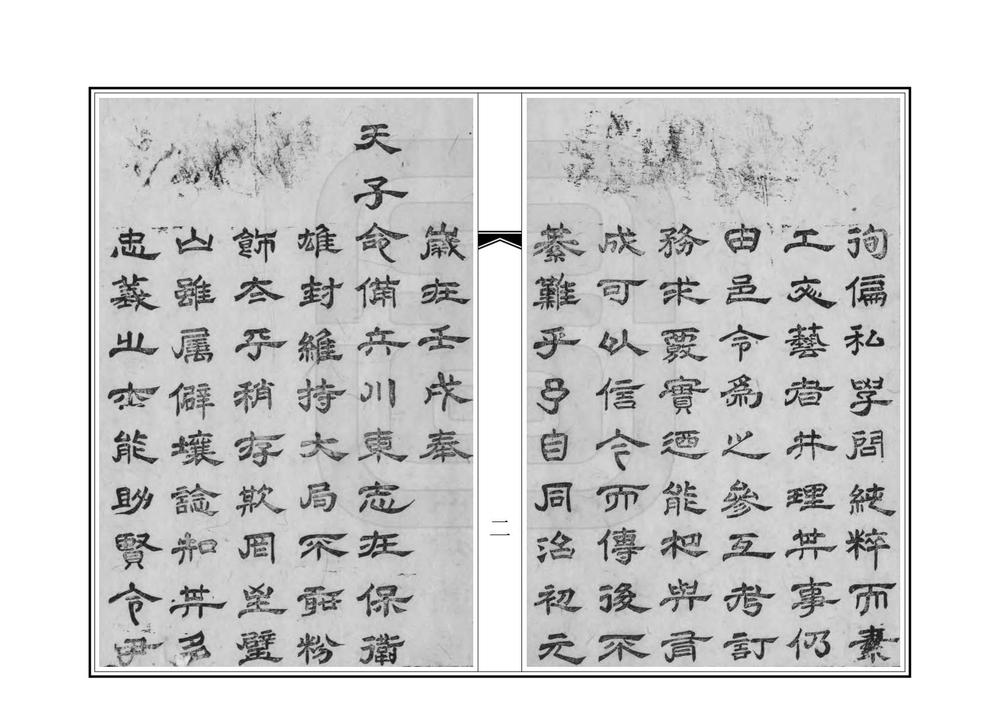 徇偏私學問純粹而素
工文藝者并理其事仍
由邑令為之參互考訂
務求覈實迺能相與有
成可以信今而傳後不
綦難乎予自同治初元
二
歲在壬戌奉
天子命備兵川東志在保衛
雄封維持大局不敢粉
飾太平稍存欺罔璧
山雖屬僻壤諗知其多
忠義之士能助賢令尹